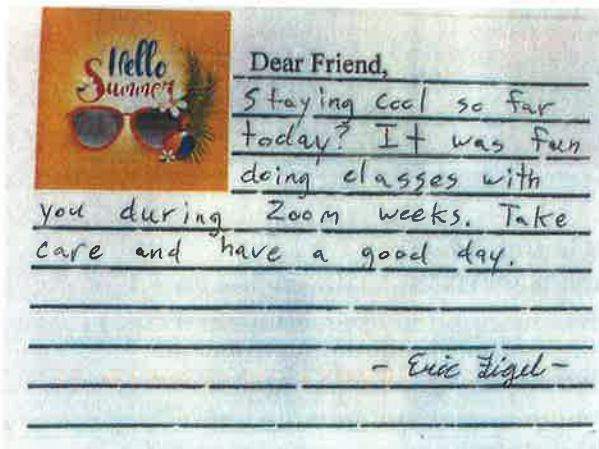 Hello
Summer
Dear Friend,
Staying cool so far
today? It was fun
doing classes with
you during Zoom weeks. Take
care and have a good day.
- Eric Zigel -